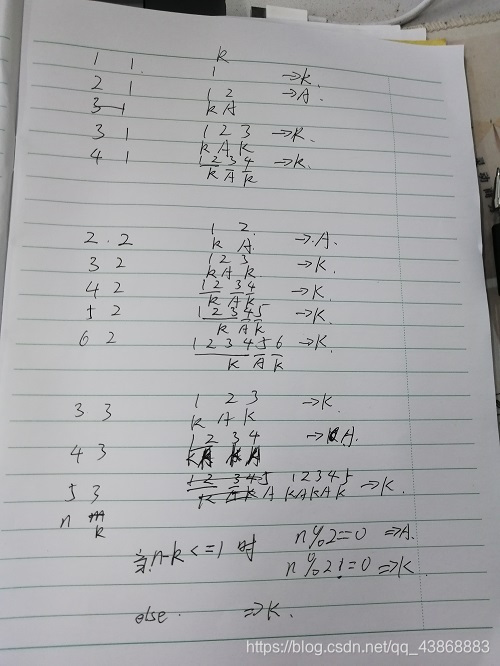 1 1 K
1 → K.
2 1 1 2 → A
3 1 K A
3 1 1 2 3 → K.
K A K
4 1 1 2 3 4 → K.
K A K
2 2 1 2. → A.
K A.
3 2 1 2 3 → K.
K A K
4 2 1 2 3 4 → K.
K A K
5 2 1 2 3 4 5 → K.
K A K
6 2 1 2 3 4 5 6 → K.
K A K
3 3 1 2 3 → K.
K A K
4 3 1 2 3 4 → A.
5 3 1 2 3 4 5 1 2 3 4 5 → K.
A K A K A K
n m
k
当n-k<=1 时 n%2==0 ⇒A
n%2!=0 ⇒K
else. ⇒K.
https://blog.csdn.net/qq_43868883